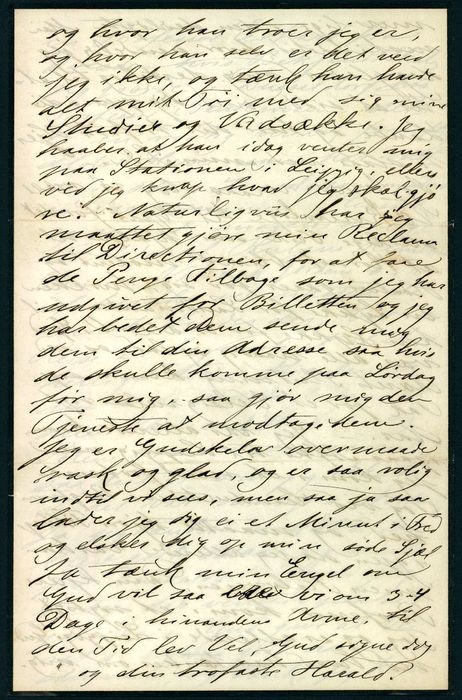 og hvor han troer jeg er,
og hvor han selv er det veed
jeg ikke, og tænk han havde
det mit Töi med sig mine
Studier og Vadsække. Jeg
haaber at han idag venter mig
paa Stationen i Leipzig, ellers
ved jeg knap hvad jeg skal gjö
re. Naturligviis har jeg
maattet gjöre min Reclama
til Directionen, for at faae
de Penge tilbage som jeg har
udgivet for Billetten og jeg
har bedet dem sende mig
dem til din Adresse saa hvis
de skulle komme paa Lördag
för mig, saa gjör mig den
Tjeneste at modtage dem.
Jeg er Gudskelov overmaade
rask og glad, og er saa rolig
indtil vi sees, men saa ja saa
lader jeg dig ei et Minut i Fred
og elsker dig op min söde Sjæl
Ja tænk min Engel om
Gud vil saa ere vi om 3-4
Dage i hinandens Arme, til
den Tid lev Vel, Gud signe dig
og din trofaste Harald.